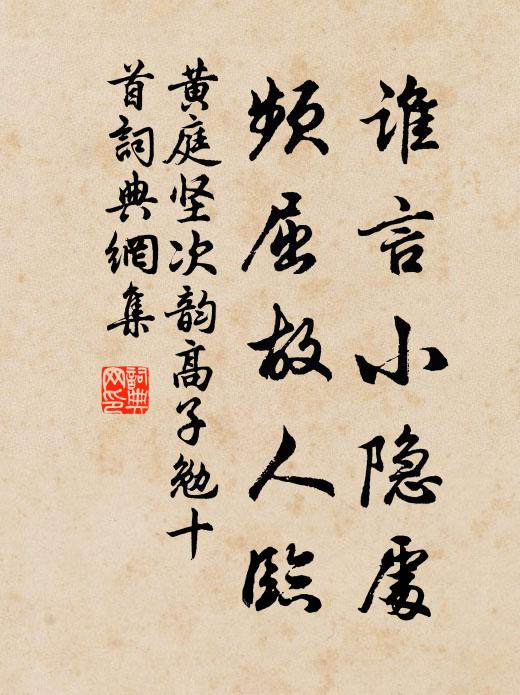 谁言小隐处
频屈故人临
黄庭坚次韵高子勉十
首词典網集
詞典
网印